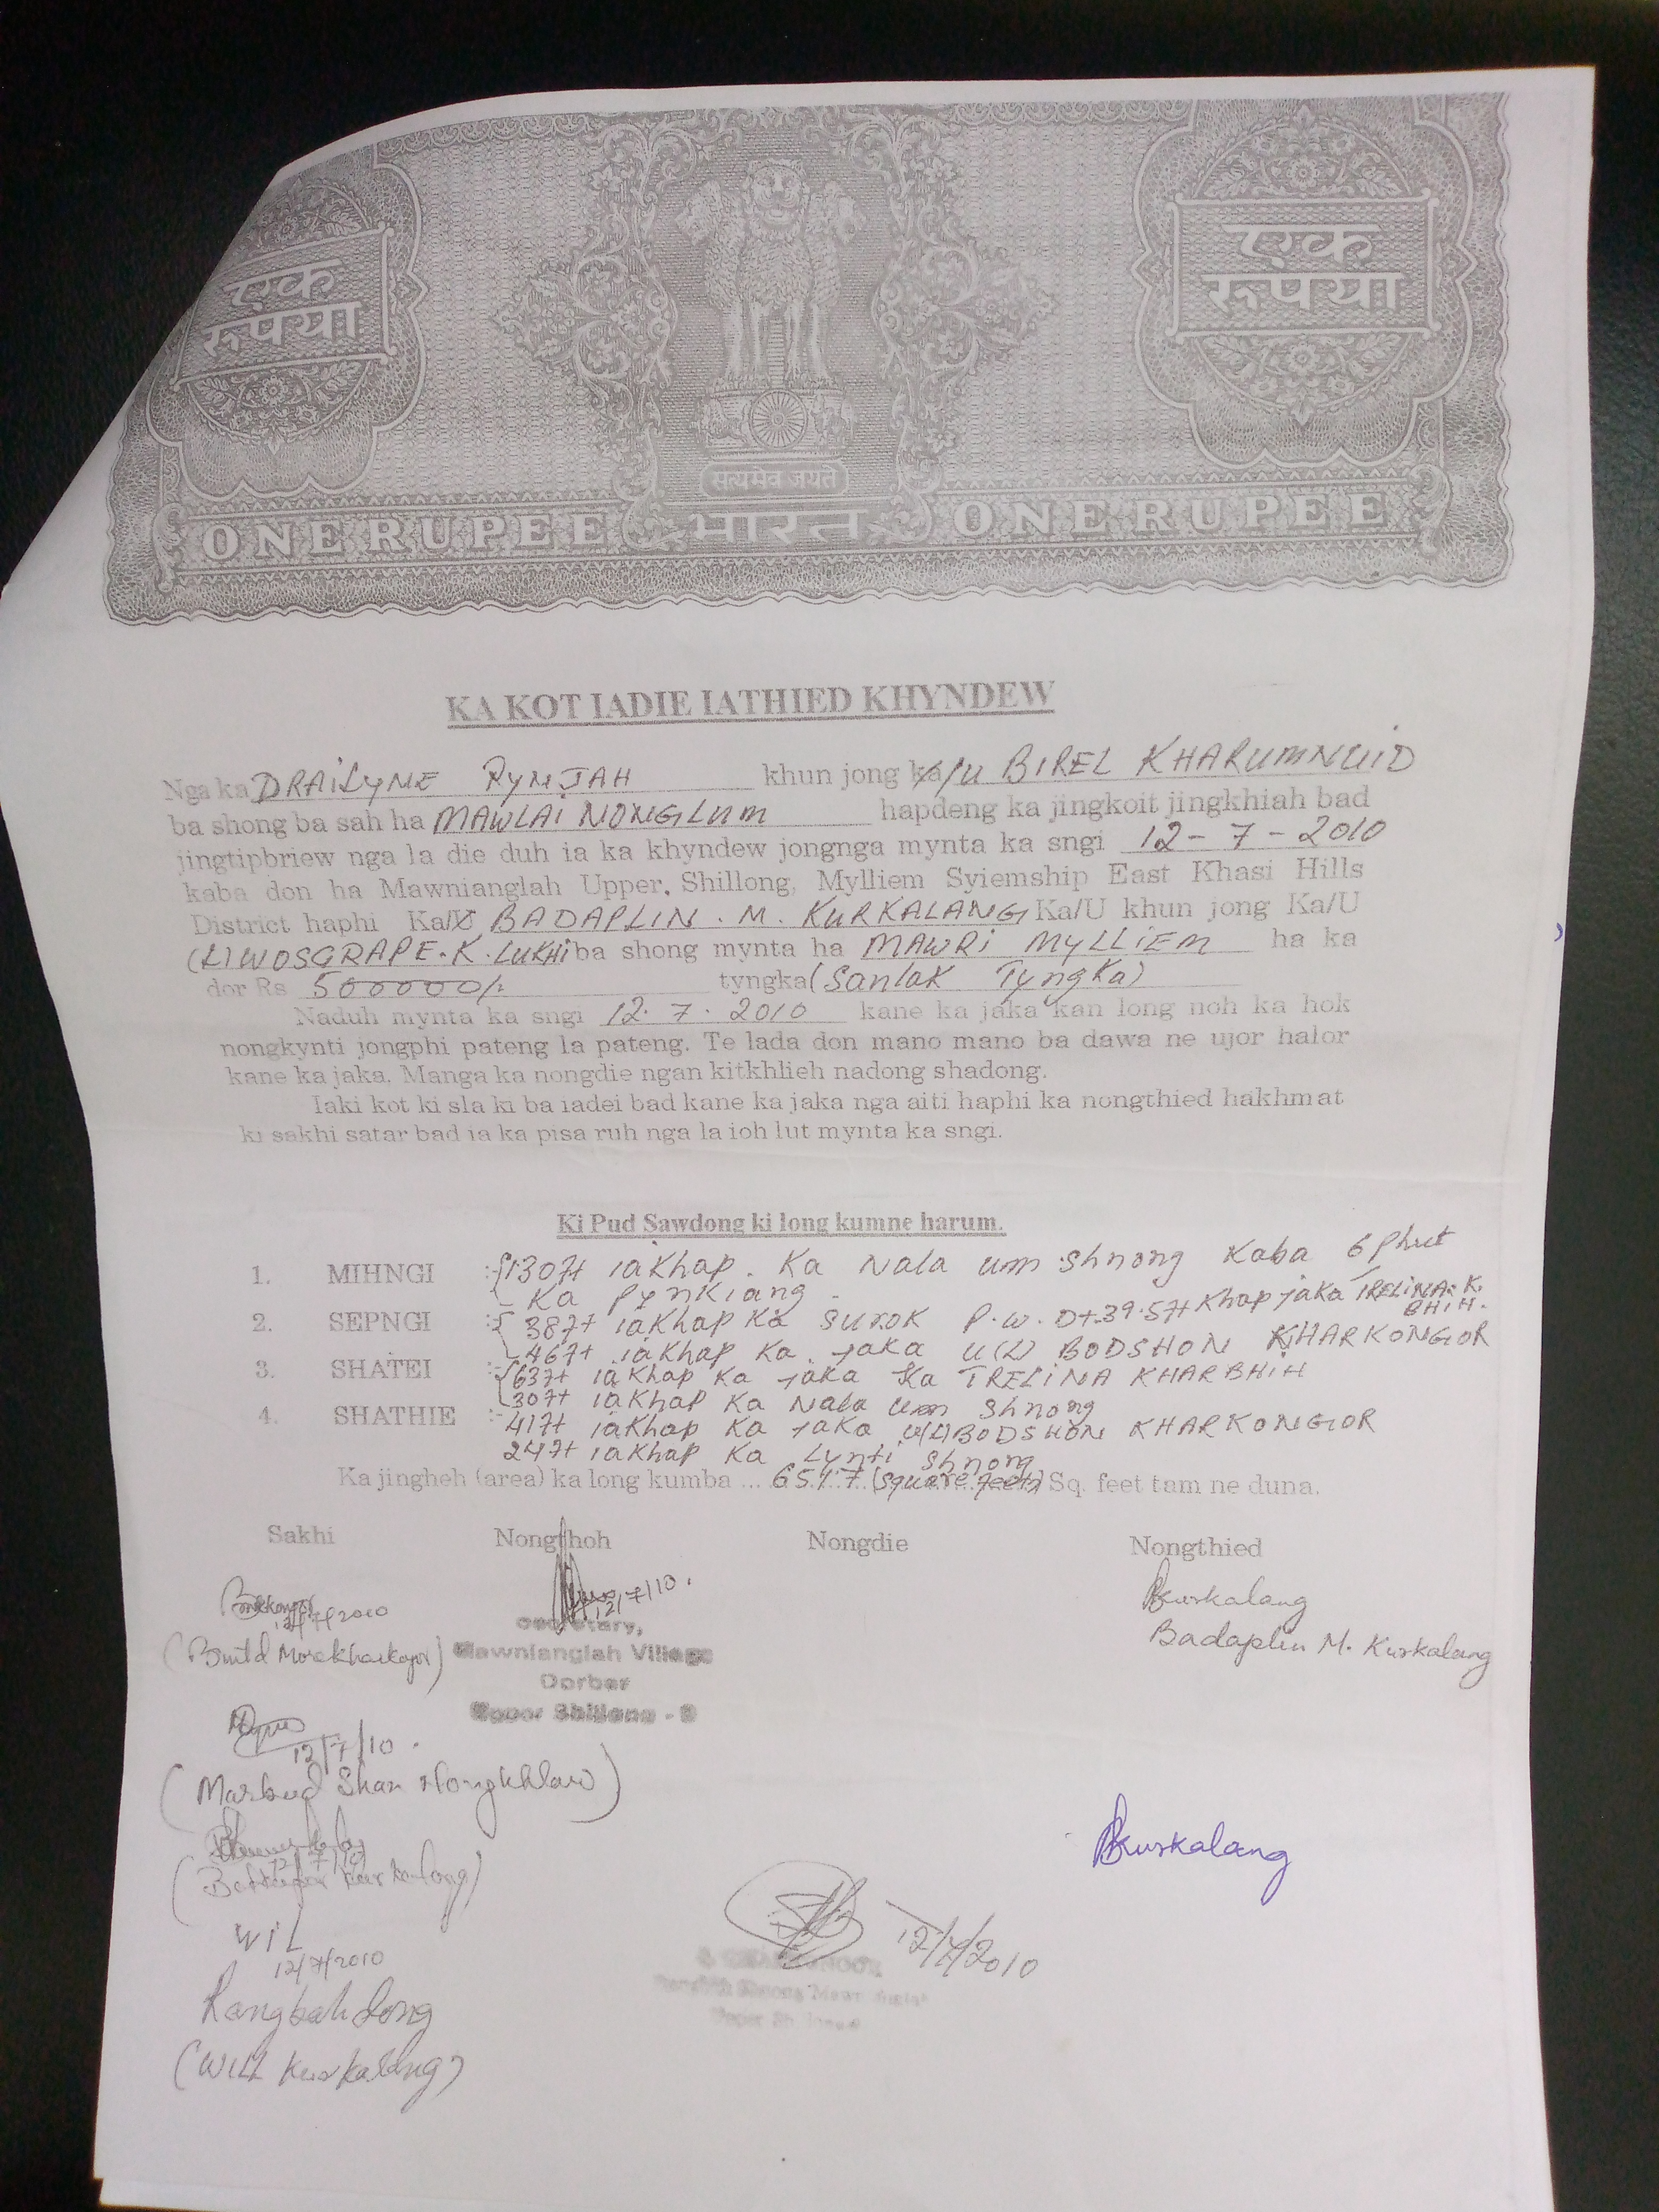 एक
रुपया
एक
रुपया
सत्यमेव जयते
ONE RUPEE भारत ONE RUPEE
KA KOT IADIE IATHIED KHYNDEW
Nga ka DRAILYNE RYNJAH khun jong ka/u BIREL KHARUMNUID
ba shong ba sah ha MAWLAI NONGLUM hapdeng ka jingkoit jingkhiah bad
jingtipbriew nga la die duh ia ka khyndew jongnga mynta ka sngi 12-7-2010
kaba don ha Mawnianglah Upper, Shillong, Mylliem Syiemship East Khasi Hills
District haphi Ka/U BADAPLIN. M. KURKALANG Ka/U khun jong Ka/U
(L) WOSGRAPE. K. LUKHI ba shong mynta ha MAWRI MYLLIEM ha ka
dor Rs 500000/- tyngka (Sanlak Tyngka)
Naduh mynta ka sngi 12. 7. 2010 kane ka jaka kan long noh ka hok
nongkynti jongphi pateng la pateng. Te lada don mano mano ba dawa ne ujor halor
kane ka jaka. Manga ka nongdie ngan kitkhlieh nadong shadong.
Iaki kot ki sla ki ba iadei bad kane ka jaka nga aiti haphi ka nongthied hakhmat
ki sakhi satar bad ia ka pisa ruh nga la ioh lut mynta ka sngi.
Ki Pud Sawdong ki long kumne harum.
1. MIHNGI :- 130ft iakhap. Ka Nala um shnong kaba 6 phut
Ka pynkiang
2. SEPNGI :- 38ft iakhap ka surok P.W.D + 39.5ft khap jaka TRELINA. K. BHIH.
46ft iakhap ka jaka u(L) BODSHON KHARKONGOR
3. SHATEI :- 63ft iakhap ka jaka ka TRELINA KHARBHIH
30ft iakhap ka Nala um shnong
4. SHATHIE :- 41ft iakhap ka jaka u(L) BODSHON KHARKONGOR
24ft iakhap ka Lynti shnong
Ka jingheh (area) ka long kumba ... (square feets) Sq. feet tam ne duna.
Sakhi Nongthoh Nongdie Nongthied
12/7/2010
12/7/10.
Kurkalang
Badaplin M. Kurkalang
Secretary,
Mawnianglah Village
Dorbar
Upper Shillong - 5
12/7/10.
(Marbud Shan Nongkhlaw)
Kurkalang
WiL
12/7/2010
12/7/2010
Rangbah dong
(Will Kurkalang)